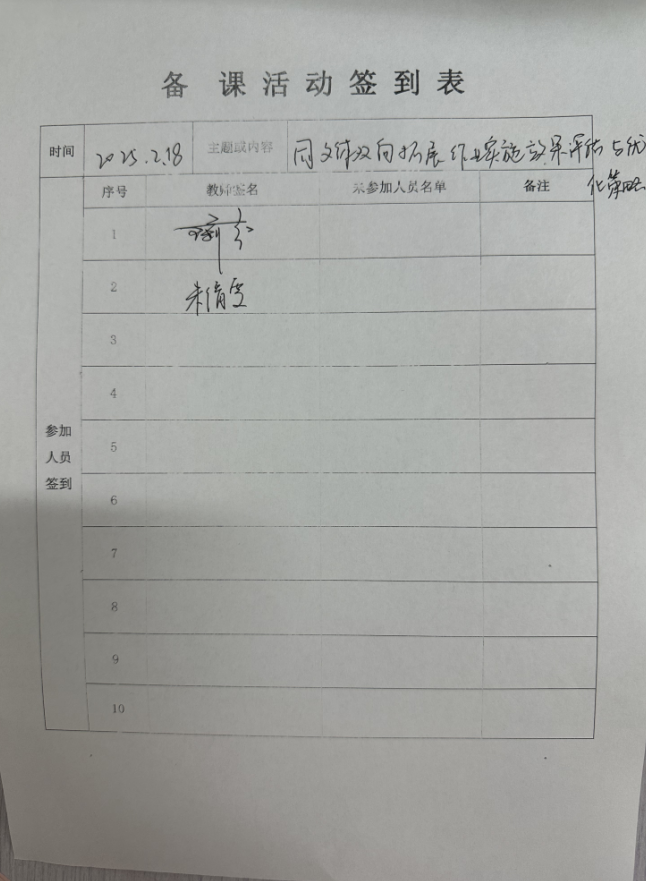 备课活动签到表
时间 2025.2.18 主题或内容 同文体双向拓展作业实施效果评估与优
化策略
序号 教师签名 未参加人员名单 备注
1
2 朱倩雯
3
4
5
6
7
8
9
10
参加
人员
签到